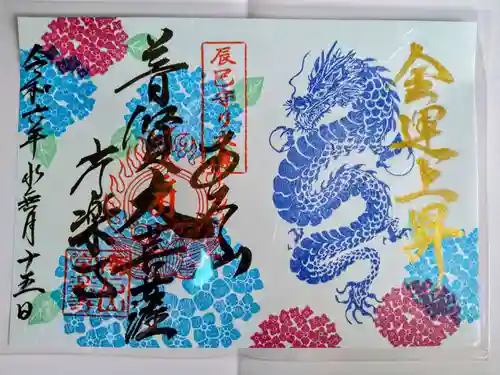 金運上昇
辰巳守り
普賢大菩薩
安楽寺
令和六年水無月十五日